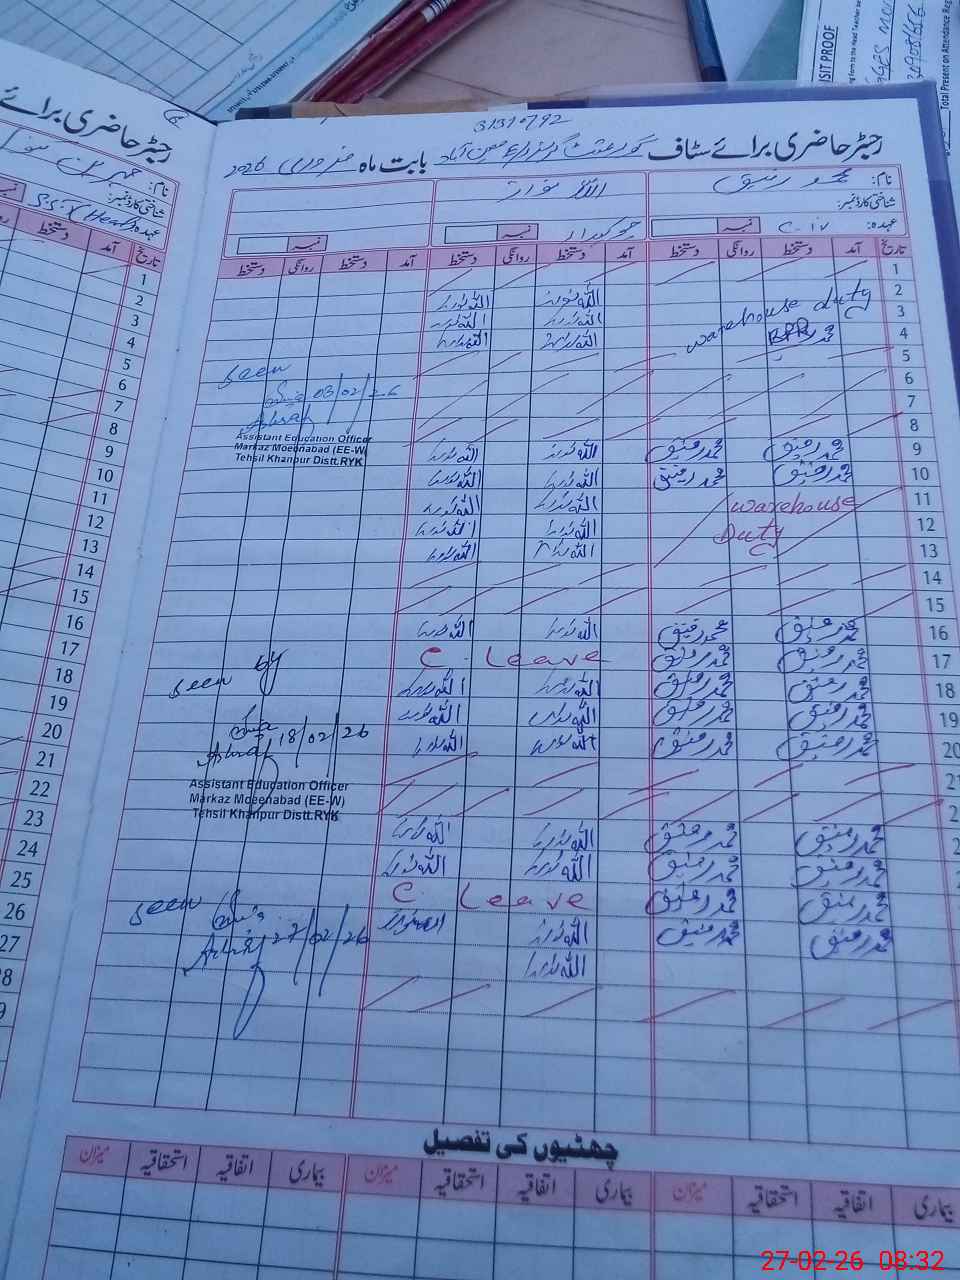 31310792
رجسٹر حاضری برائے سٹاف گورنمنٹ گرلز معین آباد بابت ماہ فروری 2026
نام: محمد رفیق
اللہ نواز
شناختی کارڈ نمبر:
عہدہ: C-IV نمبر
چوکیدار نمبر
نمبر
تاریخ آمد دستخط روانگی دستخط آمد دستخط روانگی دستخط آمد دستخط روانگی دستخط
1
2 اللہ نواز اللہ نواز
3 warehouse duty اللہ نواز اللہ نواز
4 اللہ نواز اللہ نواز
5
seen
6
03/02/26
7
Ashraf
8
Assistant Education Officer
Markaz Moeenabad (EE-W)
Tehsil Khanpur Distt.RYK
9 محمد رفیق محمد رفیق اللہ نواز اللہ نواز
10 محمد رفیق محمد رفیق اللہ نواز اللہ نواز
11 warehouse اللہ نواز اللہ نواز
12 Duty اللہ نواز اللہ نواز
13 اللہ نواز اللہ نواز
14
15
16 محمد رفیق محمد رفیق اللہ نواز اللہ نواز
17 محمد رفیق محمد رفیق C. Leave
seen by
18 محمد رفیق محمد رفیق اللہ نواز اللہ نواز
19 محمد رفیق محمد رفیق اللہ نواز اللہ نواز
20 محمد رفیق محمد رفیق اللہ نواز اللہ نواز
Ashraf 18/02/26
21
Assistant Education Officer
Markaz Moeenabad (EE-W)
Tehsil Khanpur Distt.RYK
محمد رفیق محمد رفیق اللہ نواز اللہ نواز
محمد رفیق محمد رفیق اللہ نواز اللہ نواز
محمد رفیق محمد رفیق C. Leave
seen
محمد رفیق محمد رفیق اللہ نواز اللہ نواز
Ashraf 27/02/26
اللہ نواز
چھٹیوں کی تفصیل
بیماری اتفاقیہ استحقاقیہ میزان بیماری اتفاقیہ استحقاقیہ میزان بیماری اتفاقیہ استحقاقیہ میزان
رجسٹر حاضری برائے
نام:
شناختی کارڈ نمبر:
عہدہ: S.S.T (Head)
تاریخ آمد دستخط
1
2
3
4
5
6
7
8
9
10
11
12
13
14
15
16
17
18
19
20
21
22
23
24
25
26
27
28
VISIT PROOF
Total Present on Attendance Reg
27-02-26 08:32